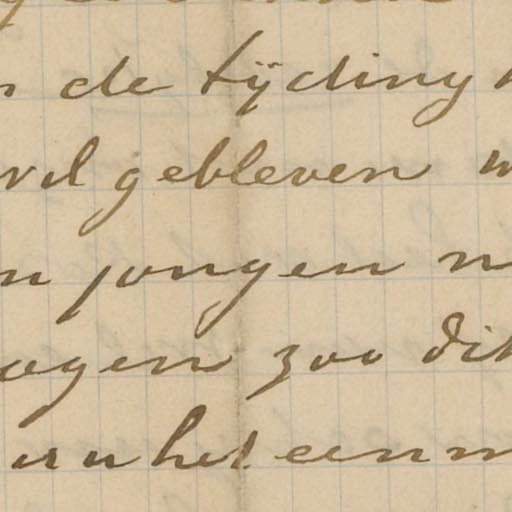 de tijding
gebleven
jongen
ogen zoo dik
het een